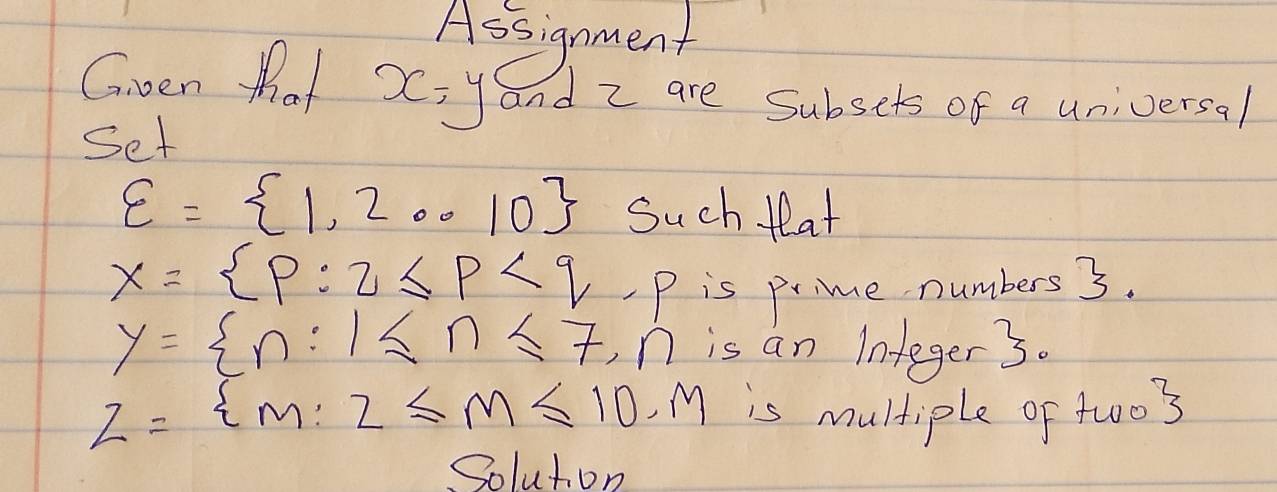 Assignment
Given that x, y and z are subsets of a universal
Set
Ɛ = {1, 2 .. 10} Such that
X = {P : 2 ≤ P < 9, p is prime numbers}.
Y = {n : 1 ≤ n ≤ 7, n is an Integer}.
Z = {M : 2 ≤ M ≤ 10, M is multiple of two}
Solution